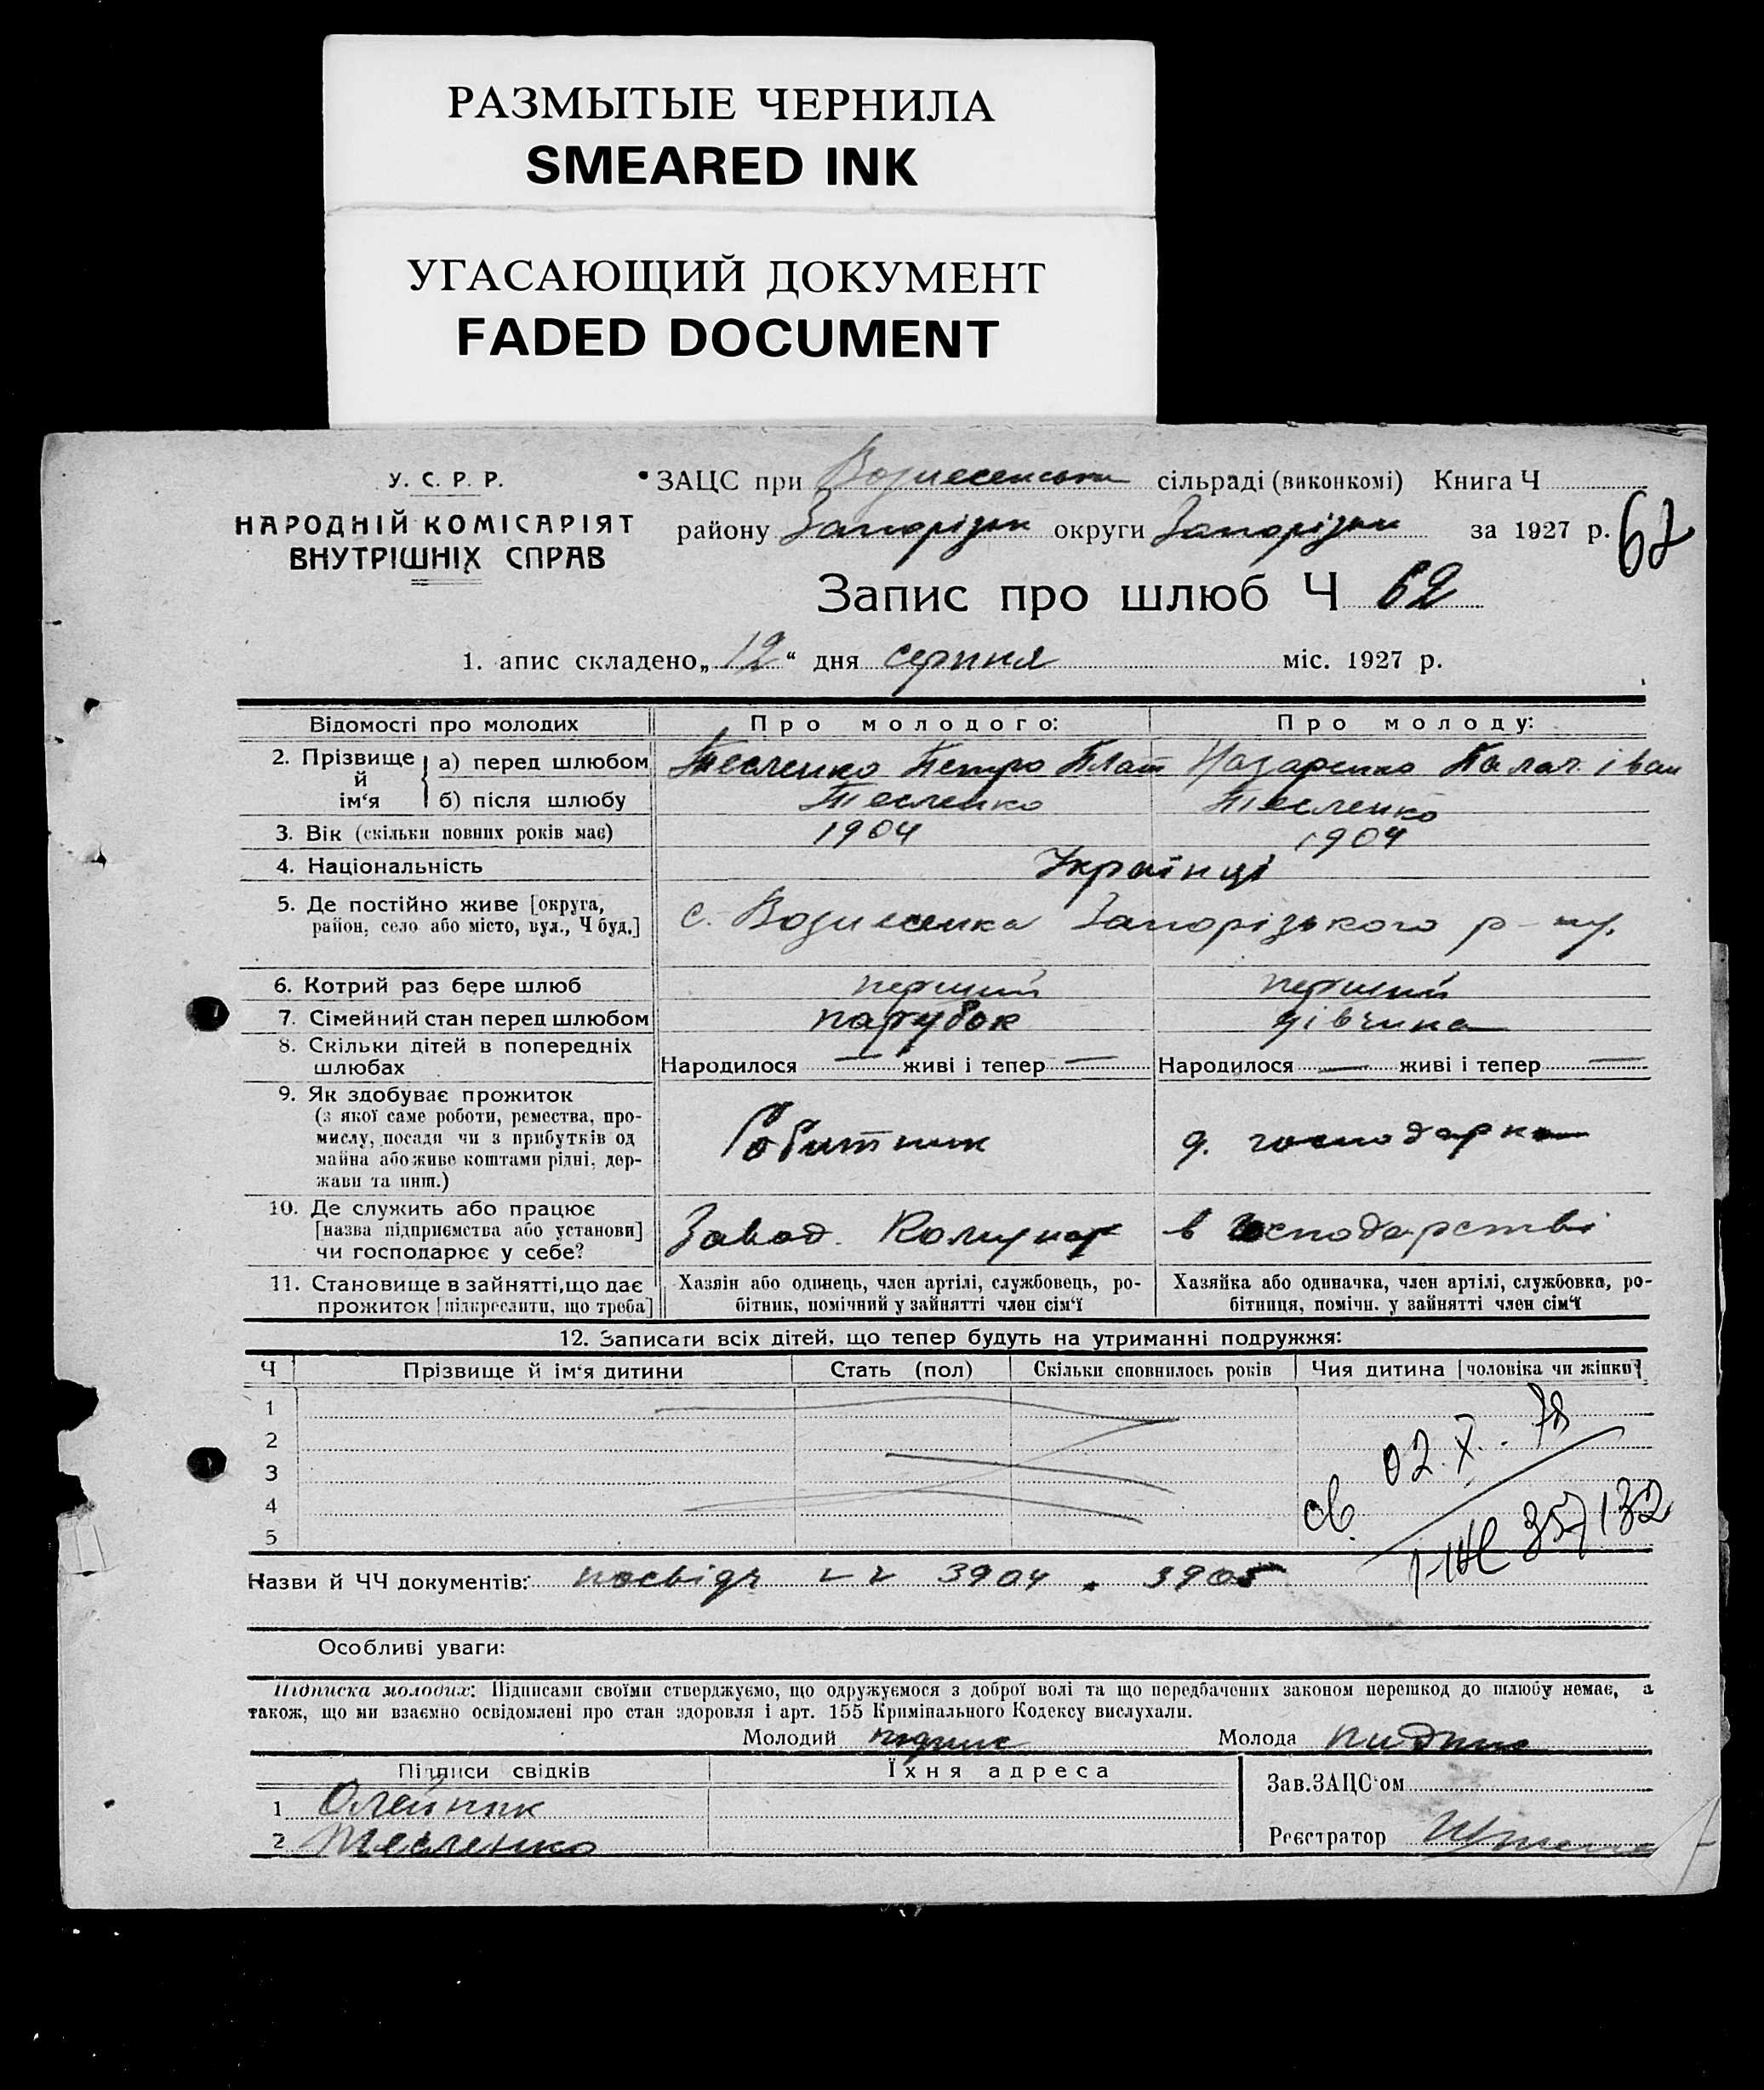 РАЗМЫТЫЕ ЧЕРНИЛА
SMEARED INK
УГАСАЮЩИЙ ДОКУМЕНТ
FADED DOCUMENT
У. С. Р. Р.
НАРОДНІЙ КОМІСАРІЯТ
ВНУТРІШНІХ СПРАВ
ЗАЦС при Вознесенськ сільраді (виконкомі) Книга Ч
району Запорізьк округи Запорізьк за 1927 р. 62
Запис про шлюб Ч 62
1. апис складено „12“ дня серпня міс. 1927 р.
Відомості про молодих Про молодого: Про молоду:
2. Прізвище й ім‘я а) перед шлюбом Тесленко Петро Плат Назаренко Палаг. іван
б) після шлюбу Тесленко Тесленко
3. Вік (скільки повних років має) 1904 1904
4. Національність Українці
5. Де постійно живе [округа, район, село або місто, вул., Ч буд.] с. Вознесенка Запорізького р-ну.
6. Котрий раз бере шлюб перший перший
7. Сімейний стан перед шлюбом парубок дівчина
8. Скільки дітей в попередніх шлюбах Народилося — живі і тепер — Народилося — живі і тепер —
9. Як здобуває прожиток
(з якої саме роботи, ремества, про-
мислу, посади чи з прибутків од
майна або живе коштами рідні, дер-
жави та инш.) Робитник д. господарка
10. Де служить або працює
[назва підприємства або установи]
чи господарює у себе? Завод. Комунар в господарстві
11. Становище в зайнятті, що дає
прожиток [підкреслити, що треба]
Хазяін або одинець, член артілі, службовець, ро-
бітник, помічний у зайнятті член сім‘ї
Хазяйка або одиначка, член артілі, службовка, ро-
бітниця, помічн. у зайнятті член сім‘ї
12. Записати всіх дітей, що тепер будуть на утриманні подружжя:
Ч Прізвище й ім‘я дитини Стать (пол) Скільки сповнилось років Чия дитина [чоловіка чи жінки]
1
2
3
4
5
02. X. 78
св.
357132
Назви й ЧЧ документів: посвідч 3904 3905
Особливі уваги:
Підписка молодих: Підписами своїми стверджуємо, що одружуємося з доброї волі та що передбачених законом перешкод до шлюбу немає, а
також, що ми взаємно освідомлені про стан здоровля і арт. 155 Кримінального Кодексу вислухали.
Молодий підпис Молода пидпис
Підписи свідків Їхня адреса Зав. ЗАЦС‘ом
1 Олейник
2 Тесленко Реєстратор